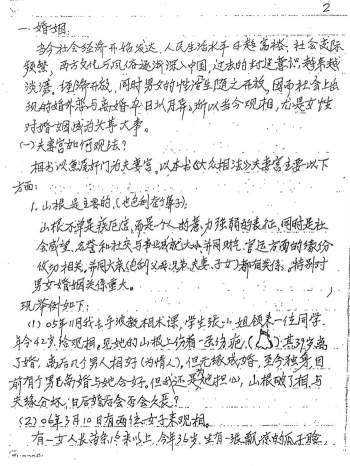 2
一、婚姻:
当今社会经济开始发达，人民生活水平日趋富裕，社会交际
频繁，西方文化与风俗逐渐深入中国，过去的封建意识越来越
淡薄，经济开放，同时男女的性活生随之开放，因而社会上出
现的婚外恋与离婚率日以月异。所以当今观相，尤是女性
对婚姻成为头等大事。
(一)夫妻宫如何观法?
相书以鱼尾奸门为夫妻宫。以本书《大众相法》夫妻宫主要以下
方面:
1、山根是主要的，(也包刮年寿子):
山根不单是疾厄宫，而是一个人的着力强弱的表征，同时是社
会威望、名誉和社交与事业成就大小，并同财宅、官运方面的缘份
攸切相关，并同六亲(包刮父母兄弟夫妻、子女)都有关系。特别对
男女婚姻关系重大。
现举例如下:
(1) 05年11月我去宁波教相术课，学生张小姐领来一位同学，
年今42岁给观相，见她的山根上伤有一条伤疤，( )其39岁离
了婚，离后几个男人相好(为情人)，但无缘成婚，至今独身，目
前有个男已离婚与她合好。但我还是为她担心，山根破了相与
夫缘分坏，日后婚后会否会久长?
(2) 06年3月10日有两位女子来观相。
有一女人长沙市16来以上，今年36岁，生有一张飘亮的瓜子脸，